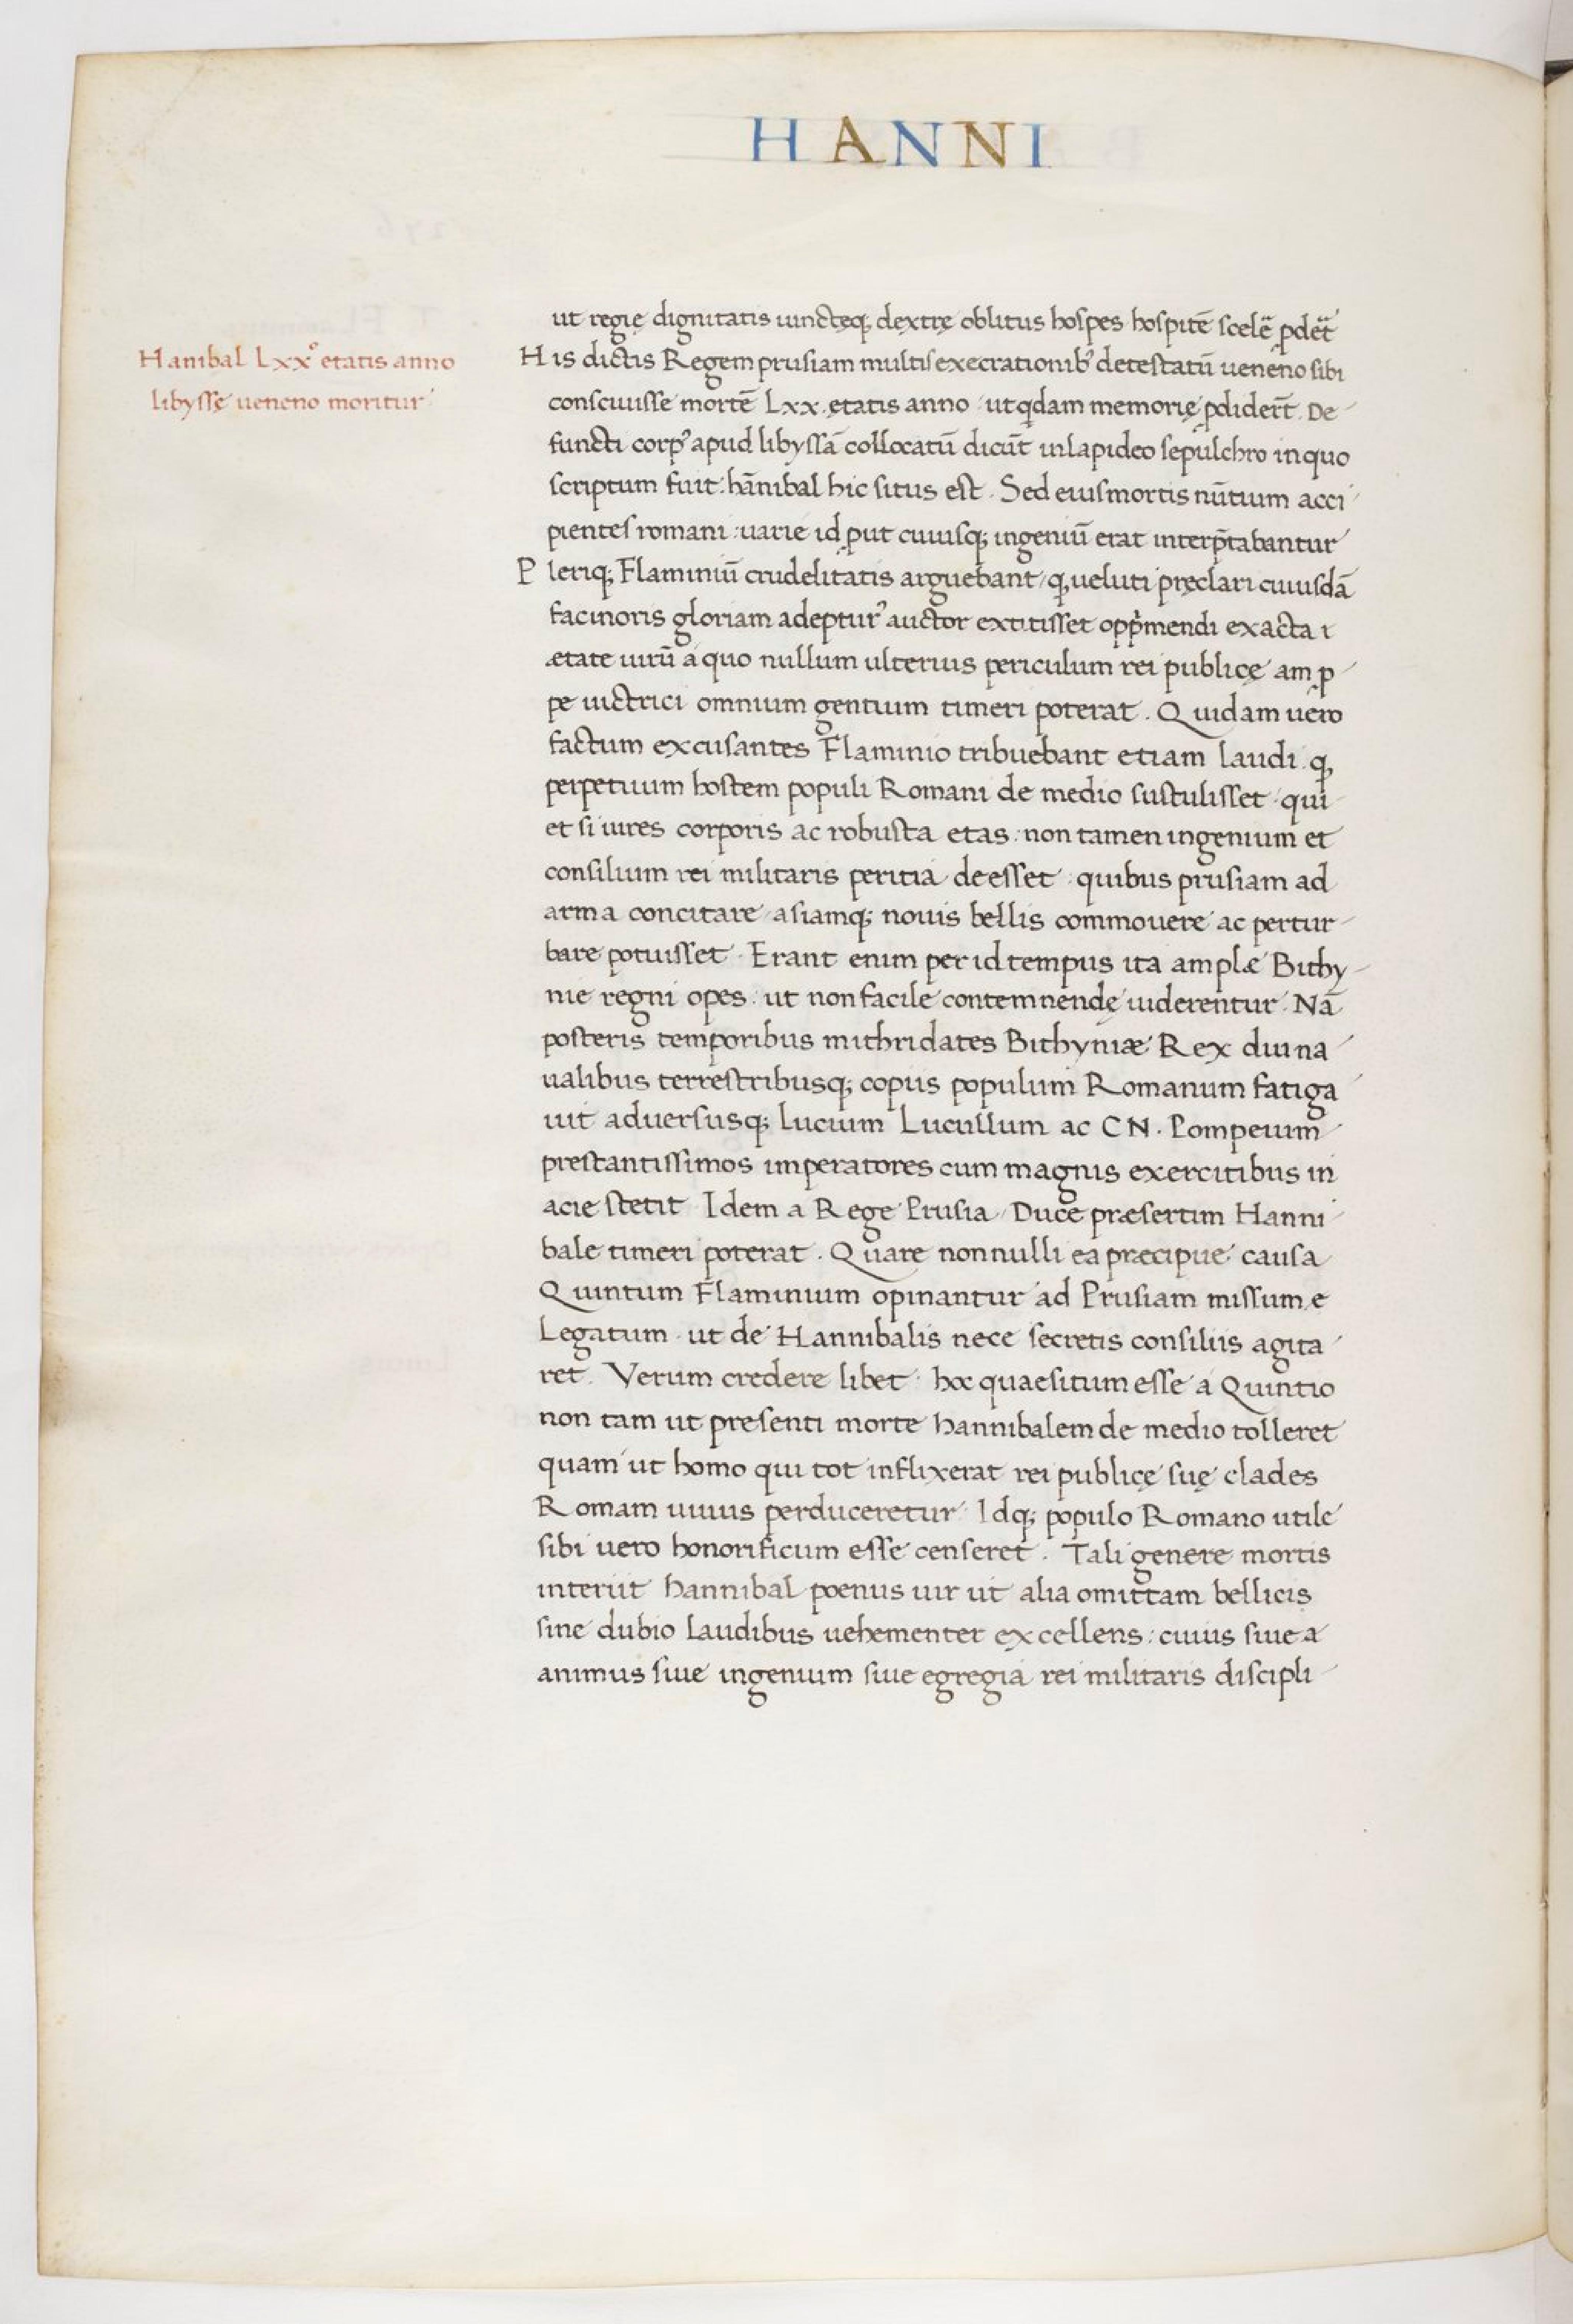 HANNI
Hanibal Lxxº etatis anno
libyssę ueneno moritur
ut regię dignitatis iunctęq; dextrę oblitus hospes hospitē scelē ꝓdēt
His dictis Regem prusiam multis execrationibꝰ detestatū ueneno sibi
consciuisse mortē Lxx. ętatis anno ut qdam memorię ꝓdiderт̄. De
functi corpꝰ apud libyssā collocatū dicūt in lapideo sepulchro in quo
scriptum fuit: hānibal hic situs est. Sed eius mortis nūtium acci
pientes romani: uarie id ꝓut cuiusq; ingeniū erat interp̄tabantur
Pleriq; Flaminiū crudelitatis arguebant, ꝙ ueluti pręclari cuiusdā
facinoris gloriam adepturꝰ auctor extitisset opp̄mendi exacta i
ætate uirū a quo nullum ulterius periculum rei publicę am ꝓ
pe uictrici omnium gentium timeri poterat. Quidam uero
factum excusantes Flaminio tribuebant etiam laudi. ꝙ
perpetuum hostem populi Romani de medio sustulisset: qui
et si uires corporis ac robusta etas: non tamen ingenium et
consilium rei militaris peritia deesset: quibus prusiam ad
arma concitare, asiamq; nouis bellis commouere ac pertur-
bare potuisset. Erant enim per id tempus ita amplæ Bithy-
nie regni opes: ut non facile contemnendę uiderentur. Nā
posteris temporibus mithridates Bithyniæ Rex diu na
ualibus terrestribusq; copiis populum Romanum fatiga
uit aduersusq; lucium Lucullum ac CN. Pompeium
prestantissimos imperatores cum magnis exercitibus in
acie stetit. Idem a Rege Prusia, Duce præsertim Hanni
bale timeri poterat. Quare nonnulli ea præcipue causa
Quintum Flaminium opinantur ad Prusiam missum, e
Legatum. ut de Hannibalis nece secretis consiliis agita
ret. Verum credere libet: hoc quaesitum esse a Quintio
non tam ut presenti morte hannibalem de medio tolleret
quam ut homo qui tot inflixerat rei publicę suę clades
Romam uiuus perduceretur. Idq; populo Romano utile
sibi uero honorificum esse censeret. Tali genere mortis
interiit hannibal poenus uir ut alia omittam bellicis
sine dubio laudibus uehementer excellens: cuius siue a
animus siue ingenium siue egregia rei militaris discipli-